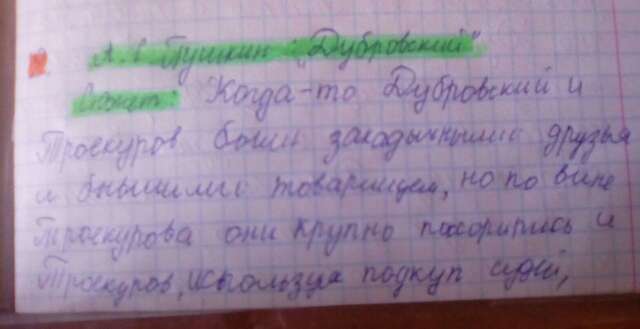 А.С Пушкин: "Дубровский"
Сюжет: Когда-то Дубровский и
Троекуров были закадычными друзья
и бывшими товарищем, но по вине
Троекурова они крупно поссорились и
Троекуров, используя подкуп судей,